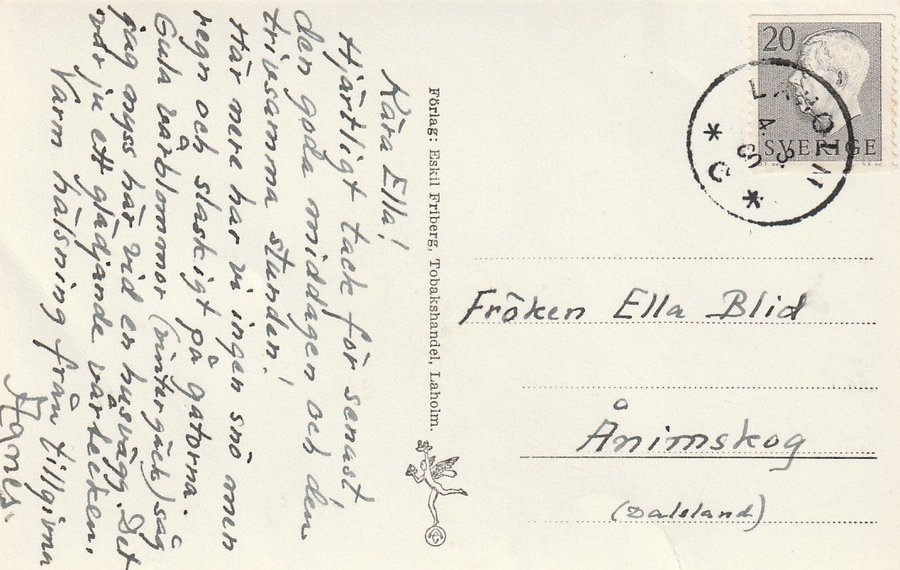 Kära Ella!
Hjärtligt tack för senast
den goda middagen och den
trivsamma stunden!
Här nere har vi ingen snö men
regn och slaskigt på gatorna.
Gula vårblommor (vintergäck) såg
jag nyss här vid en husvägg. Det
var ju ett glädjande vårtecken.
Varm hälsning från tillgivna
Agnes.
Förlag: Eskil Friberg, Tobakshandel, Laholm.
20
SVERIGE
LAHOLM
Fröken Ella Blid
Ånimskog
(Dalsland)